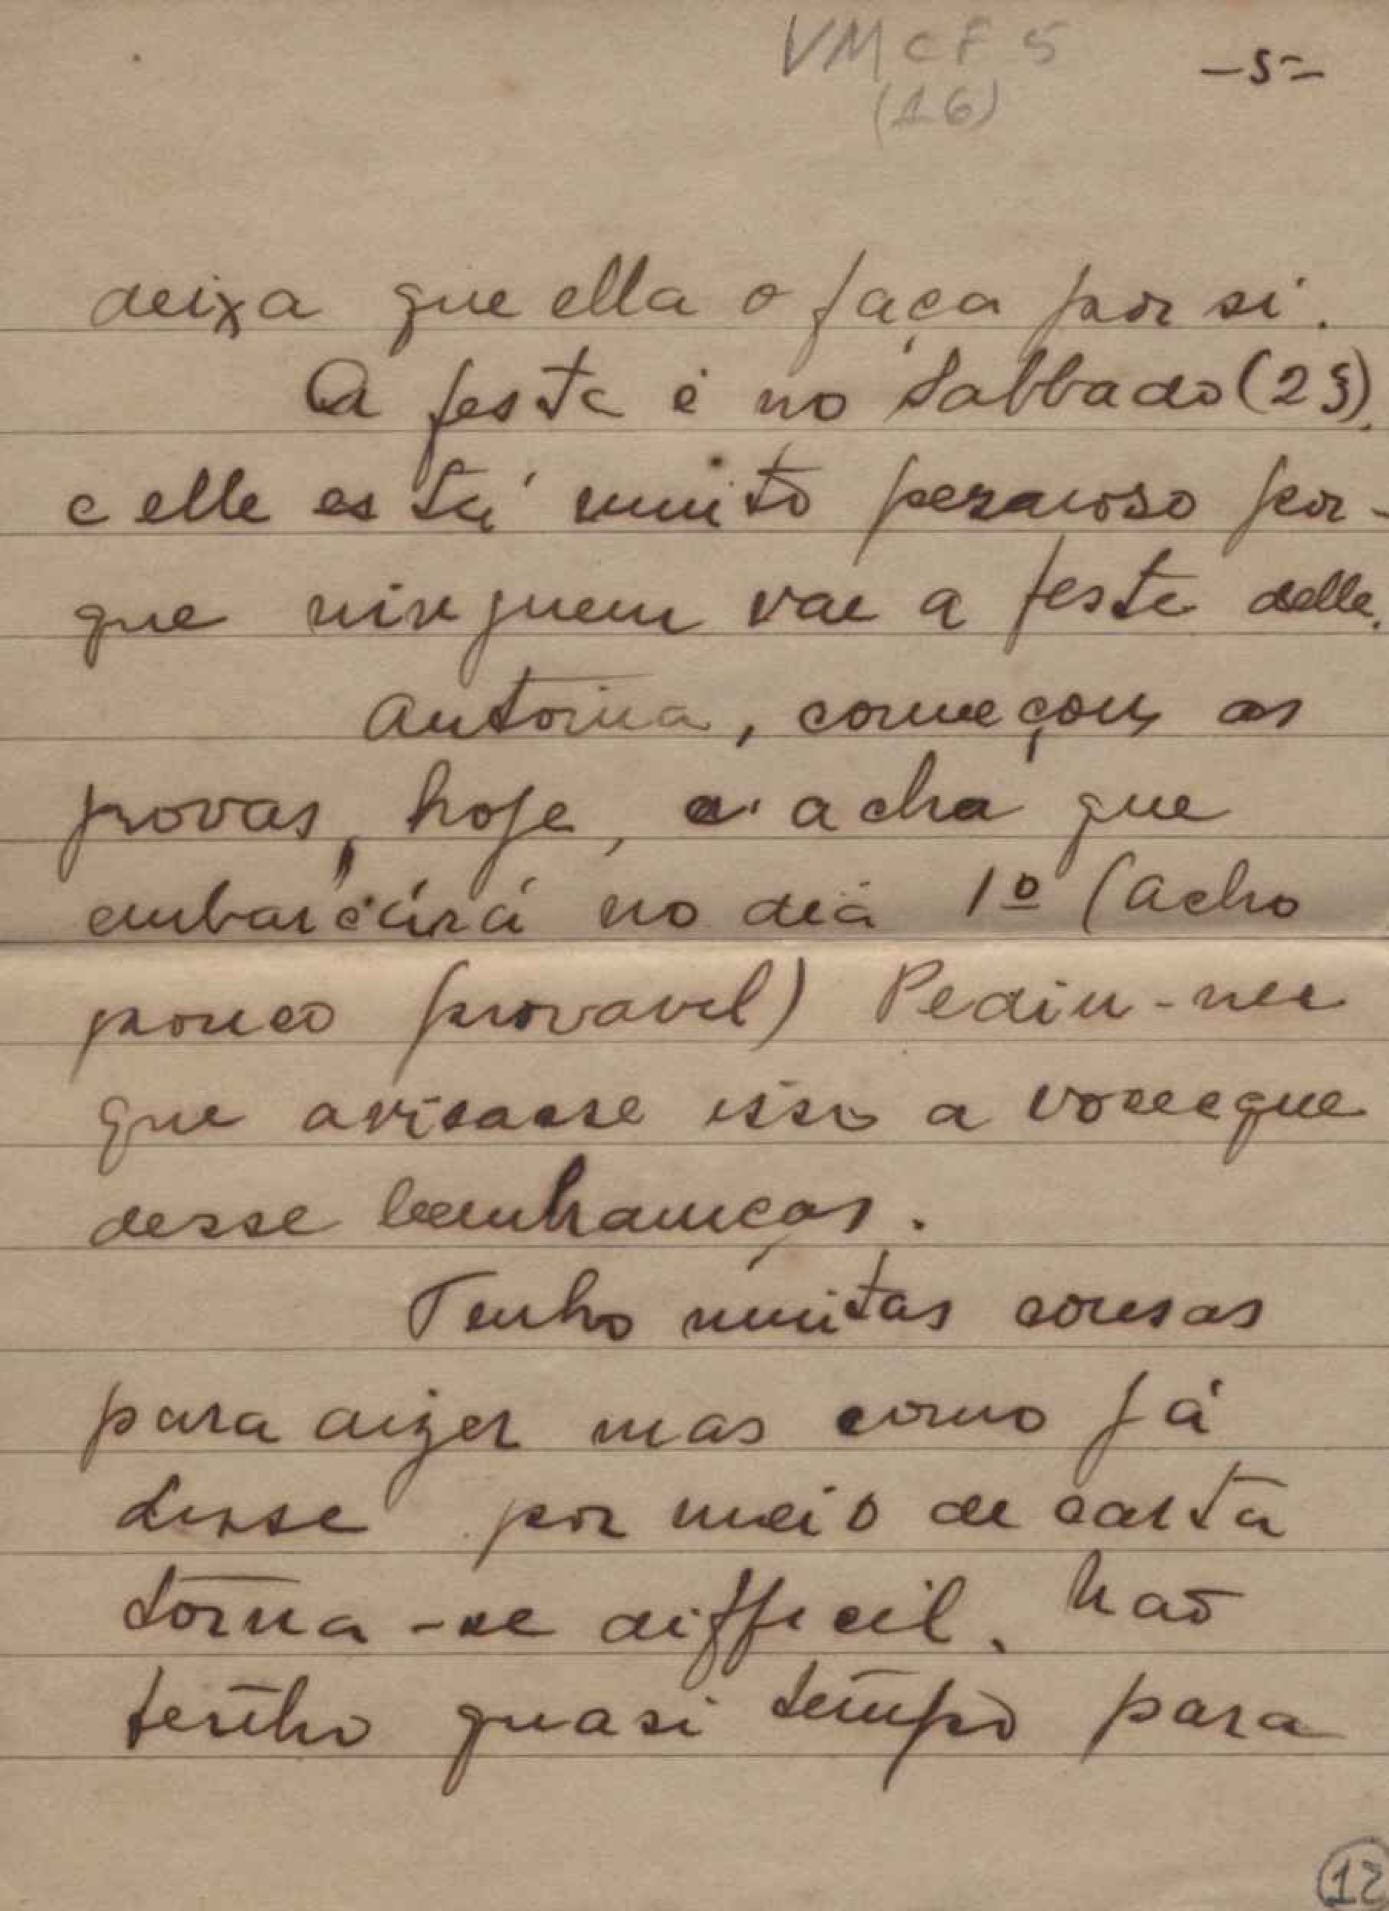 VMCF 5
(16)
-5-
deixa que ella o faça por si.
A festa é no Sabbado (25).
e elle está muito pesaroso por-
que ninguem vae a festa delle.
Antonia, começou as
provas, hoje, e acha que
embarcará no dia 1º (acho
pouco provavel) Pediu-me
que avisasse isso a voce e que
desse lembranças.
Tenho muitas cousas
para dizer mas como já
disse por meio de carta
torna-se difficil. Não
tenho quasi tempo para
12